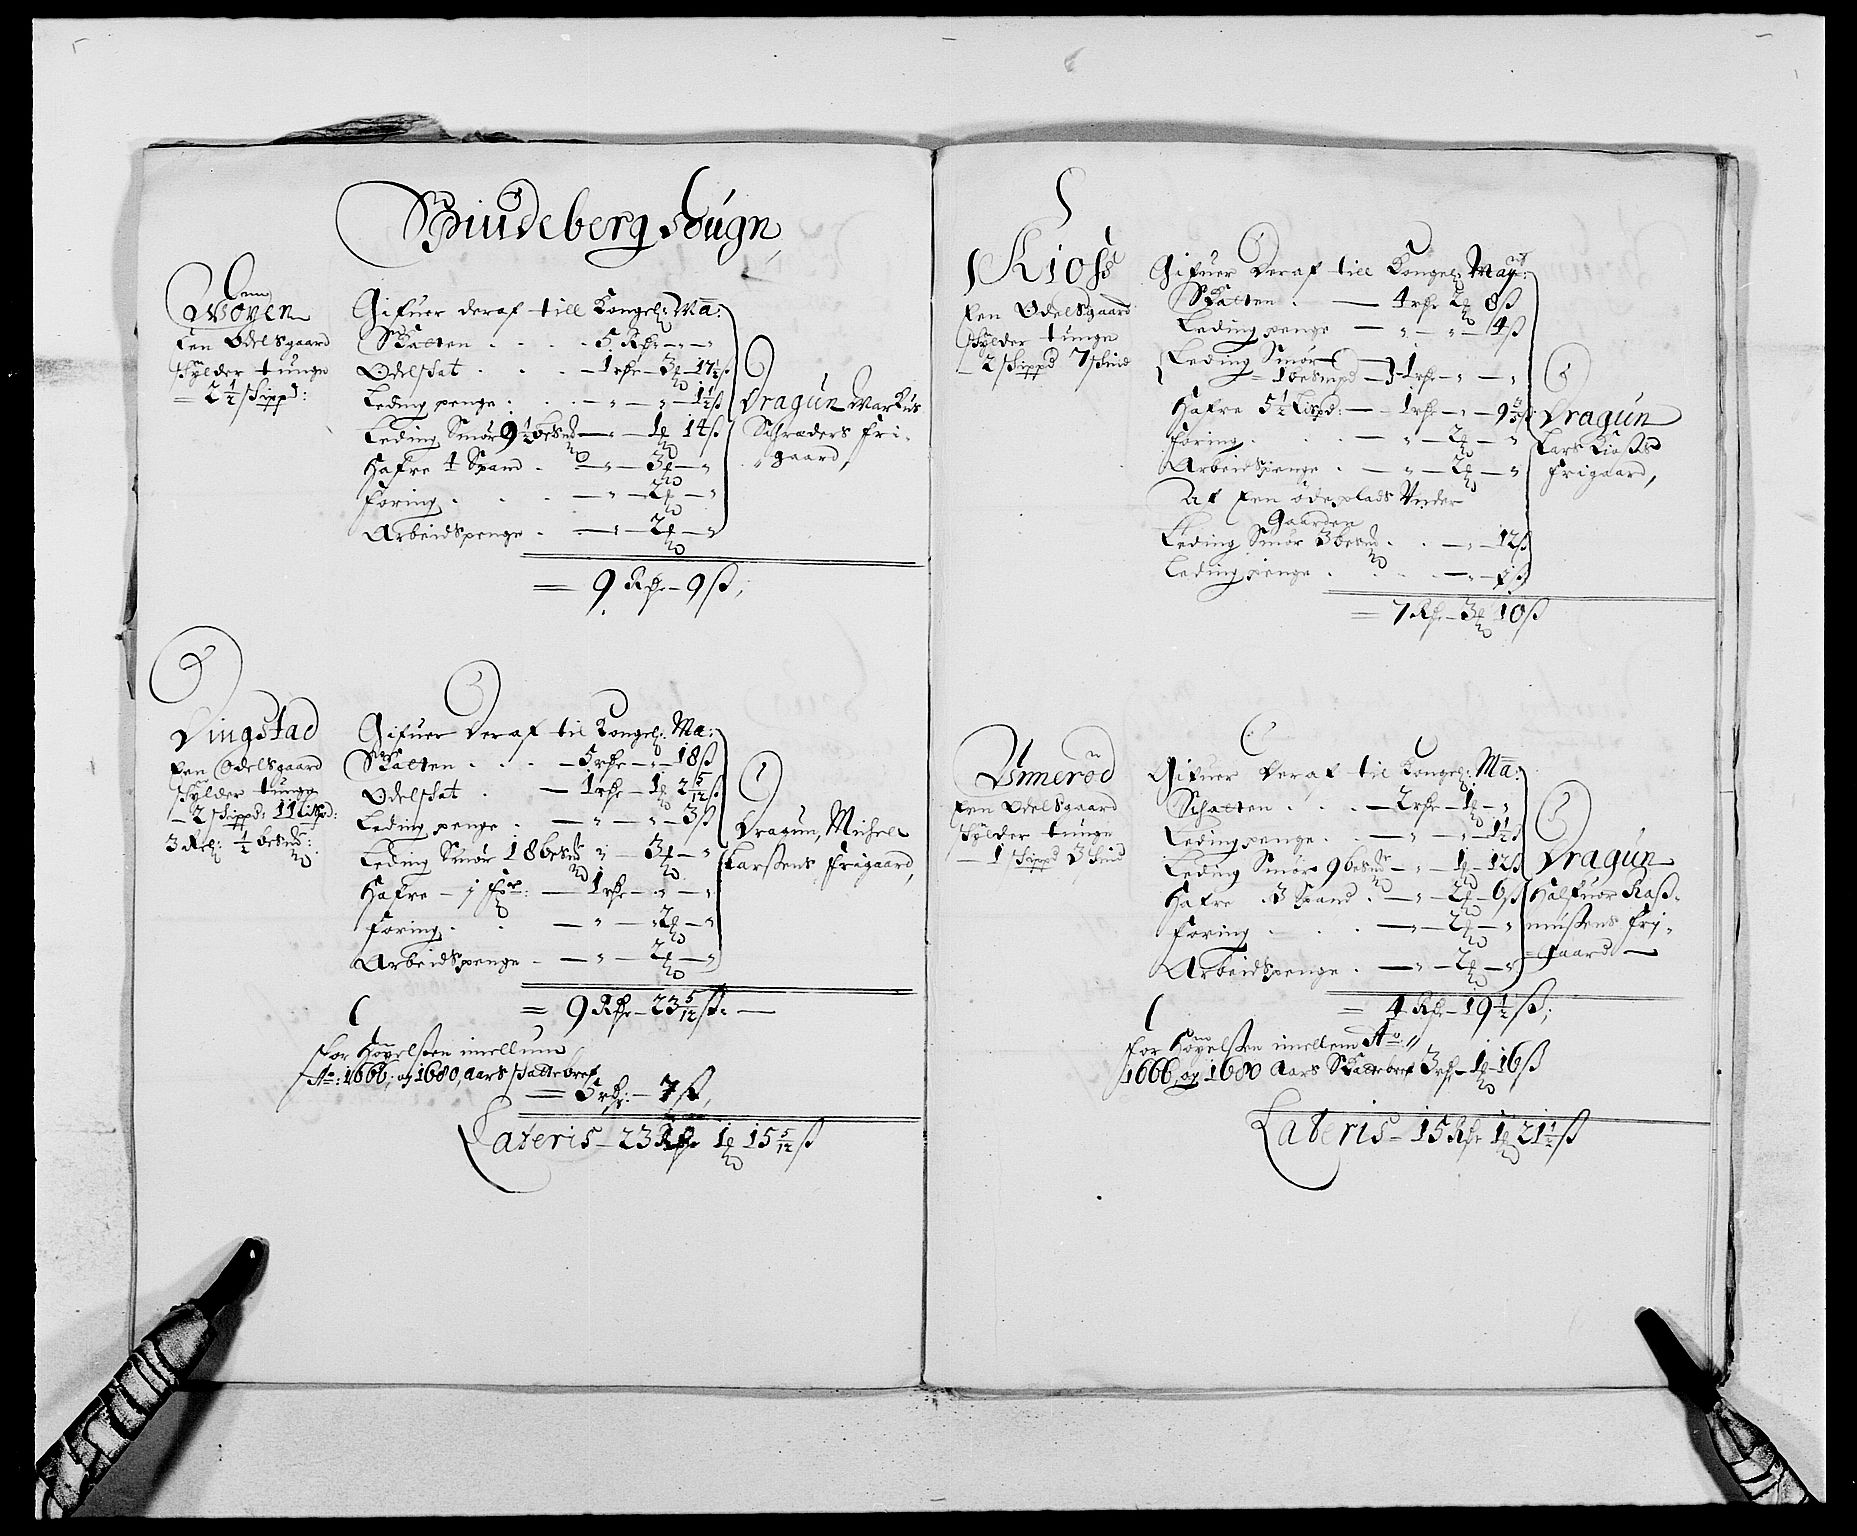 Schiudeberg Sougn
Woyen
Een Odelsgaard
skylder tunge
2 1/2 skippd:
Gifuer deraf till Kongel: Ma:
Skatten . . . . 5 Rdr — " — "
Odelskat . . . — 1 rdr — 3 — 17 1/2 ß
Leding penge . . . — " — " — 1 1/2 ß
Leding Smör 9 1/2 besm — " — 1 14 ß
Hafre 4 Spand . — " — 3 — "
Foring . . . — " — 2 — "
Arbeidspenge . . — " — 2 — "
Dragun Markus
Schraders Fri-
gaard,
= 9 Rdr — 9 ß;
Dingstad
Een Odelsgaard
skylder tunge
— 2 skippd: 11 lispd:
3 1/2 besm:
Gifuer deraf til Kongel: Ma:
Skatten . . . . — 5 rdr — " — 18 ß
Odelskat . . — 1 rdr — 1 2 5/12 ß
Leding penge . — " — " — 3 ß
Leding Smör 18 besm " — 3 — "
Hafre — j — 1 rdr — " — "
Foring . . . — " — 2 — "
Arbeidspenge . — " — 2 — "
Dragun, Michel
Larssens frigaard,
= 9 Rdr — 23 5/12 ß: —
For imellum
Ao: 1666, og 1680, aars skattebref
= 5 rdr: — 7 ß,
Lateris — 23 Rdr 1 15 5/12 ß
Kioss
Een Odelsgaard
skylder tunge
— 2 skippd 7
Gifuer deraf till Kongel: Mayt:
Skatten . — 4 rdr 2 8 ß
Leding penge — " — " — 4 ß
Leding Smör
= 1 besmpd — 1 rdr — " — "
Hafre 5 1/2 Lispd: — 1 rdr — " — 9 ß
Foring . . . — " — 2 — "
Arbeidspenge . — " — 2 — "
Af Een öde plads Under
Gaarden
Leding Smör 3 besm . . — " — 12 ß
Leding penge . . . . — " — ß
Dragun
Lars Kioses
frigaard,
= 7 Rdr — 3 10 ß
Een Odelsgaard
skylder tunge
— 1 skippd 3
Gifuer deraf til Kongel: Ma:
Schatten . . . — 2 rdr — 1 — "
Leding penge . — " — " — 1 1/2 ß
Leding Smör 9 besm — " — 1 — 12 ß
Hafre . 3 Spand . — " — 2 — 6 ß
Foring . . . — " — 2 — "
Arbeidspenge . — " — 2 — "
Dragun
Halfuor Raß-
mußens fri-
gaard —
= 4 Rdr — 19 1/2 ß;
For imellem Ao:
1666, og 1680 Aars Skattebref 3 rdr — 1 — 16 ß
Lateris — 15 Rdr 1 21 1/2 ß